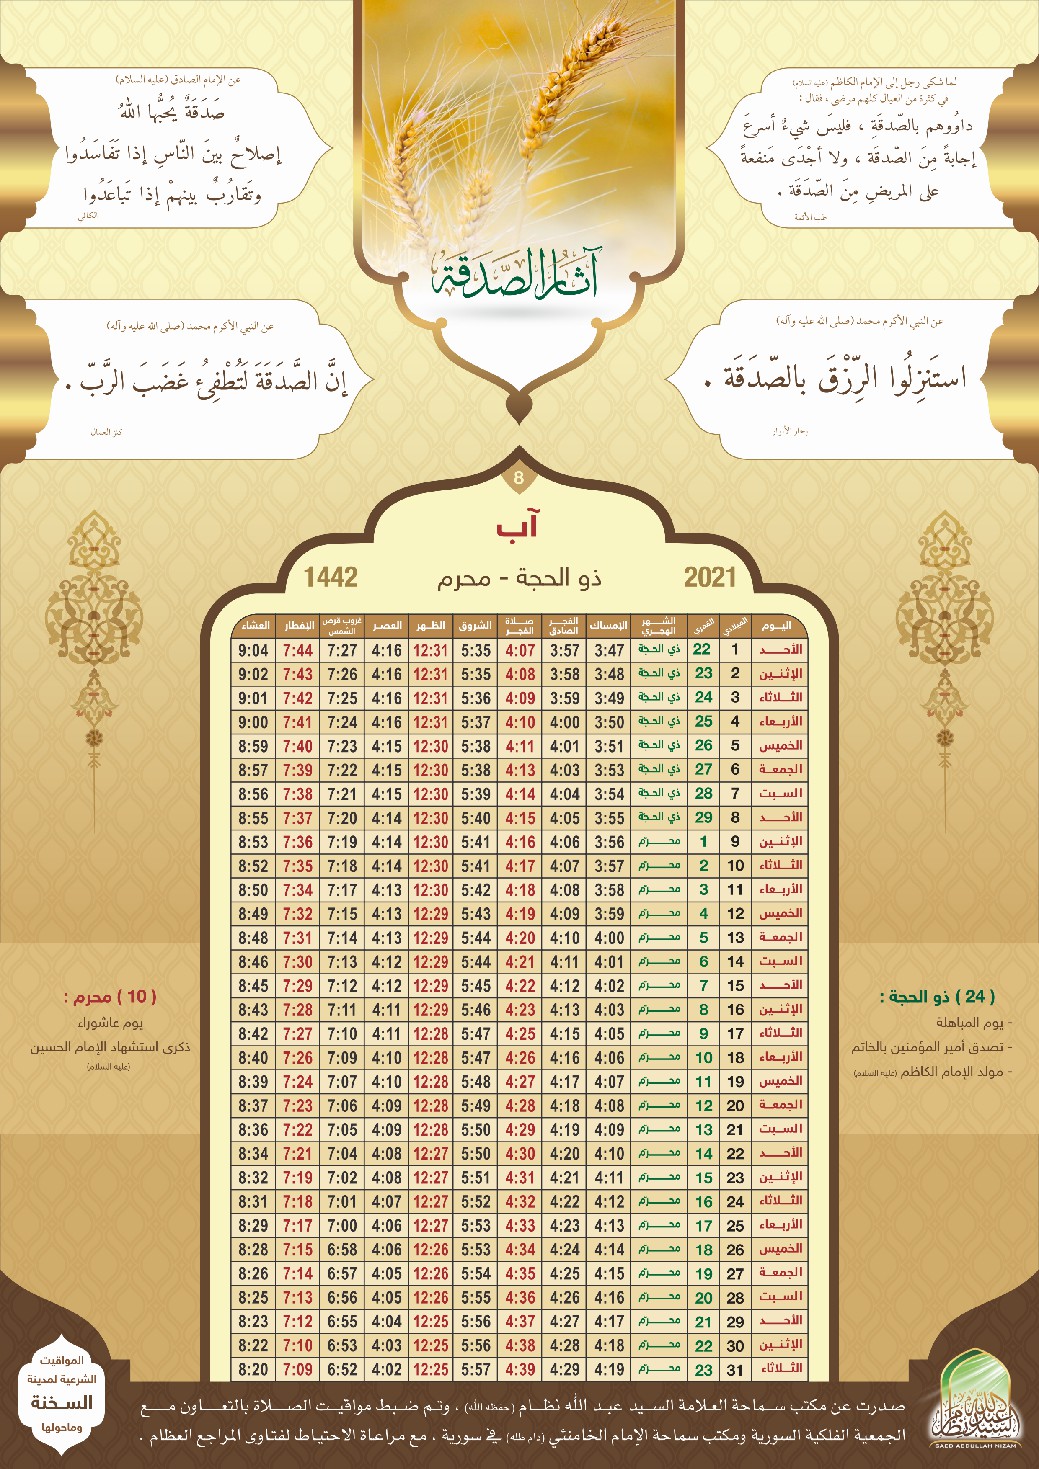 لما شكى رجل إلى الإمام الكاظم (عليه السلام)
في كثرة من العيال كلهم مرضى ، فقال :
داوُوهم بالصّدقَةِ ، فليسَ شيءٌ أسرعَ
إجابةً مِنَ الصّدقَة ، ولا أجْدَى مَنفعةً
على المريضِ مِنَ الصّدَقَة .
طب الأئمة
عن الإمام الصادق (عليه السلام)
صَدَقَةٌ يُحبُّها اللهُ
إصلاحٌ بينَ النّاسِ إذا تَفَاسَدُوا
وتَقارُبٌ بينهمْ إذا تَباعَدُوا
الكافي
آثار الصّدقة
عن النبي الأكرم محمد (صلى الله عليه وآله)
استَنزِلُوا الرِّزْقَ بالصّدَقَة .
بحار الأنوار
عن النبي الأكرم محمد (صلى الله عليه وآله)
إنَّ الصَّدَقَةَ لَتُطْفِئُ غَضَبَ الرَّبّ .
كنز العمال
8
آب
2021 ذو الحجة - محرم 1442
اليوم الميلادي القمري الشهر الهجري الإمساك الفجر الصادق صلاة الفجر الشروق الظهر العصر غروب قرص الشمس الإفطار العشاء
الأحد 1 22 ذي الحجة 3:47 3:57 4:07 5:35 12:31 4:16 7:27 7:44 9:04
الإثنين 2 23 ذي الحجة 3:48 3:58 4:08 5:35 12:31 4:16 7:26 7:43 9:02
الثلاثاء 3 24 ذي الحجة 3:49 3:59 4:09 5:36 12:31 4:16 7:25 7:42 9:01
الأربعاء 4 25 ذي الحجة 3:50 4:00 4:10 5:37 12:31 4:16 7:24 7:41 9:00
الخميس 5 26 ذي الحجة 3:51 4:01 4:11 5:38 12:30 4:15 7:23 7:40 8:59
الجمعة 6 27 ذي الحجة 3:53 4:03 4:13 5:38 12:30 4:15 7:22 7:39 8:57
السبت 7 28 ذي الحجة 3:54 4:04 4:14 5:39 12:30 4:15 7:21 7:38 8:56
الأحد 8 29 ذي الحجة 3:55 4:05 4:15 5:40 12:30 4:14 7:20 7:37 8:55
الإثنين 9 1 محرم 3:56 4:06 4:16 5:41 12:30 4:14 7:19 7:36 8:53
الثلاثاء 10 2 محرم 3:57 4:07 4:17 5:41 12:30 4:14 7:18 7:35 8:52
الأربعاء 11 3 محرم 3:58 4:08 4:18 5:42 12:30 4:13 7:17 7:34 8:50
الخميس 12 4 محرم 3:59 4:09 4:19 5:43 12:29 4:13 7:15 7:32 8:49
الجمعة 13 5 محرم 4:00 4:10 4:20 5:44 12:29 4:13 7:14 7:31 8:48
السبت 14 6 محرم 4:01 4:11 4:21 5:44 12:29 4:12 7:13 7:30 8:46
الأحد 15 7 محرم 4:02 4:12 4:22 5:45 12:29 4:12 7:12 7:29 8:45
الإثنين 16 8 محرم 4:03 4:13 4:23 5:46 12:29 4:11 7:11 7:28 8:43
الثلاثاء 17 9 محرم 4:05 4:15 4:25 5:47 12:28 4:11 7:10 7:27 8:42
الأربعاء 18 10 محرم 4:06 4:16 4:26 5:47 12:28 4:10 7:09 7:26 8:40
الخميس 19 11 محرم 4:07 4:17 4:27 5:48 12:28 4:10 7:07 7:24 8:39
الجمعة 20 12 محرم 4:08 4:18 4:28 5:49 12:28 4:09 7:06 7:23 8:37
السبت 21 13 محرم 4:09 4:19 4:29 5:50 12:28 4:09 7:05 7:22 8:36
الأحد 22 14 محرم 4:10 4:20 4:30 5:50 12:27 4:08 7:04 7:21 8:34
الإثنين 23 15 محرم 4:11 4:21 4:31 5:51 12:27 4:08 7:02 7:19 8:32
الثلاثاء 24 16 محرم 4:12 4:22 4:32 5:52 12:27 4:07 7:01 7:18 8:31
الأربعاء 25 17 محرم 4:13 4:23 4:33 5:53 12:27 4:06 7:00 7:17 8:29
الخميس 26 18 محرم 4:14 4:24 4:34 5:53 12:26 4:06 6:58 7:15 8:28
الجمعة 27 19 محرم 4:15 4:25 4:35 5:54 12:26 4:05 6:57 7:14 8:26
السبت 28 20 محرم 4:16 4:26 4:36 5:55 12:26 4:05 6:56 7:13 8:25
الأحد 29 21 محرم 4:17 4:27 4:37 5:56 12:25 4:04 6:55 7:12 8:23
الإثنين 30 22 محرم 4:18 4:28 4:38 5:56 12:25 4:03 6:53 7:10 8:22
الثلاثاء 31 23 محرم 4:19 4:29 4:39 5:57 12:25 4:02 6:52 7:09 8:20
( 24 ) ذو الحجة :
- يوم المباهلة
- تصدق أمير المؤمنين بالخاتم
- مولد الإمام الكاظم (عليه السلام)
( 10 ) محرم :
يوم عاشوراء
ذكرى استشهاد الإمام الحسين
(عليه السلام)
المواقيت
الشرعية لمدينة
السخنة
وماحولها
صدرت عن مكتب سماحة العلامة السيد عبد الله نظام (حفظه الله) ، وتم ضبط مواقيت الصلاة بالتعاون مع
الجمعية الفلكية السورية ومكتب سماحة الإمام الخامنئي (دام ظله) في سورية ، مع مراعاة الاحتياط لفتاوى المراجع العظام .
السيد عبد الله نظام
SAED ABDULLAH NIZAM